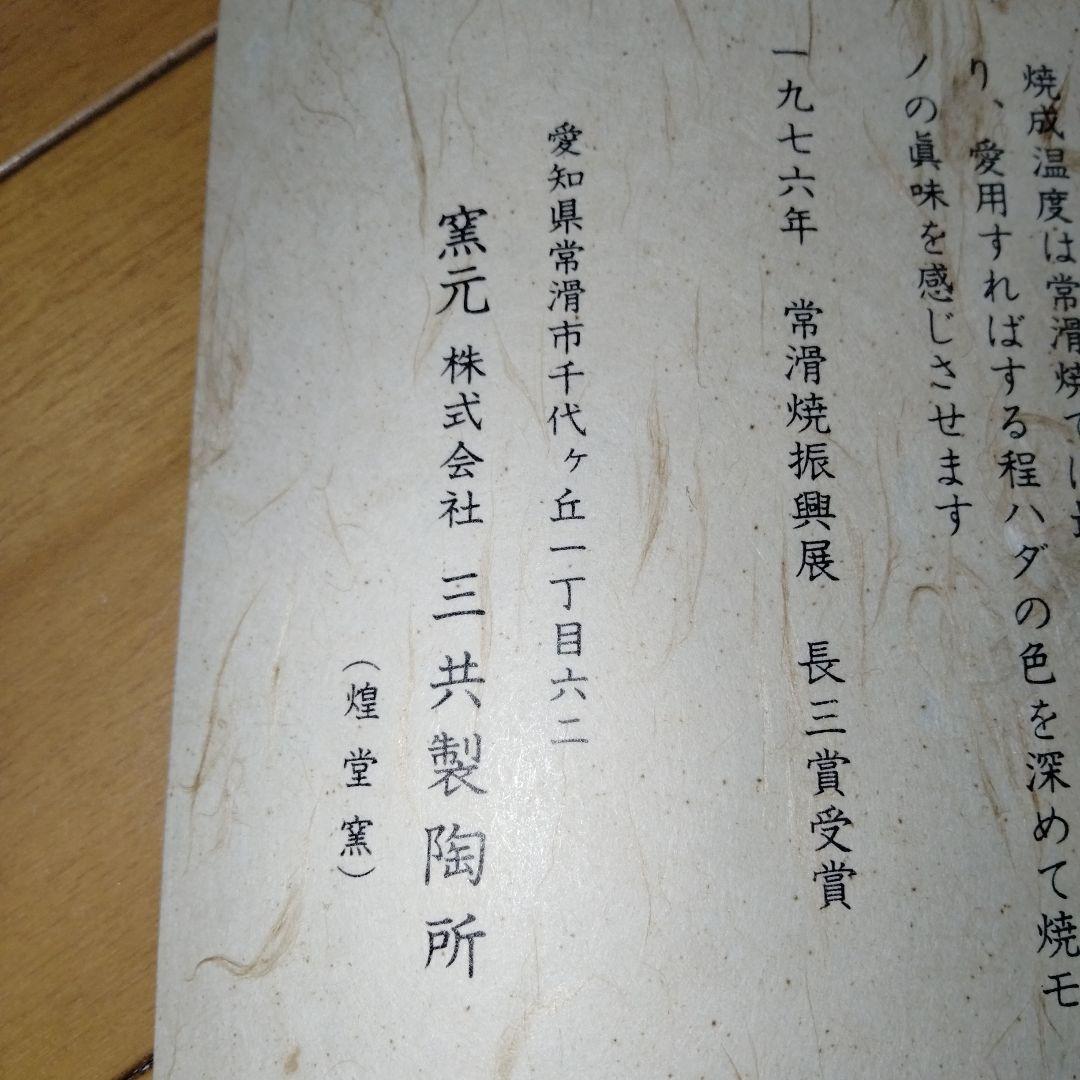 焼成温度は常滑焼では
り、愛用すればする程ハダの色を深めて焼モ
ノの眞味を感じさせます
一九七六年 常滑焼振興展 長三賞受賞
愛知県常滑市千代ヶ丘一丁目六二
窯元 株式会社 三共製陶所
（煌堂窯）